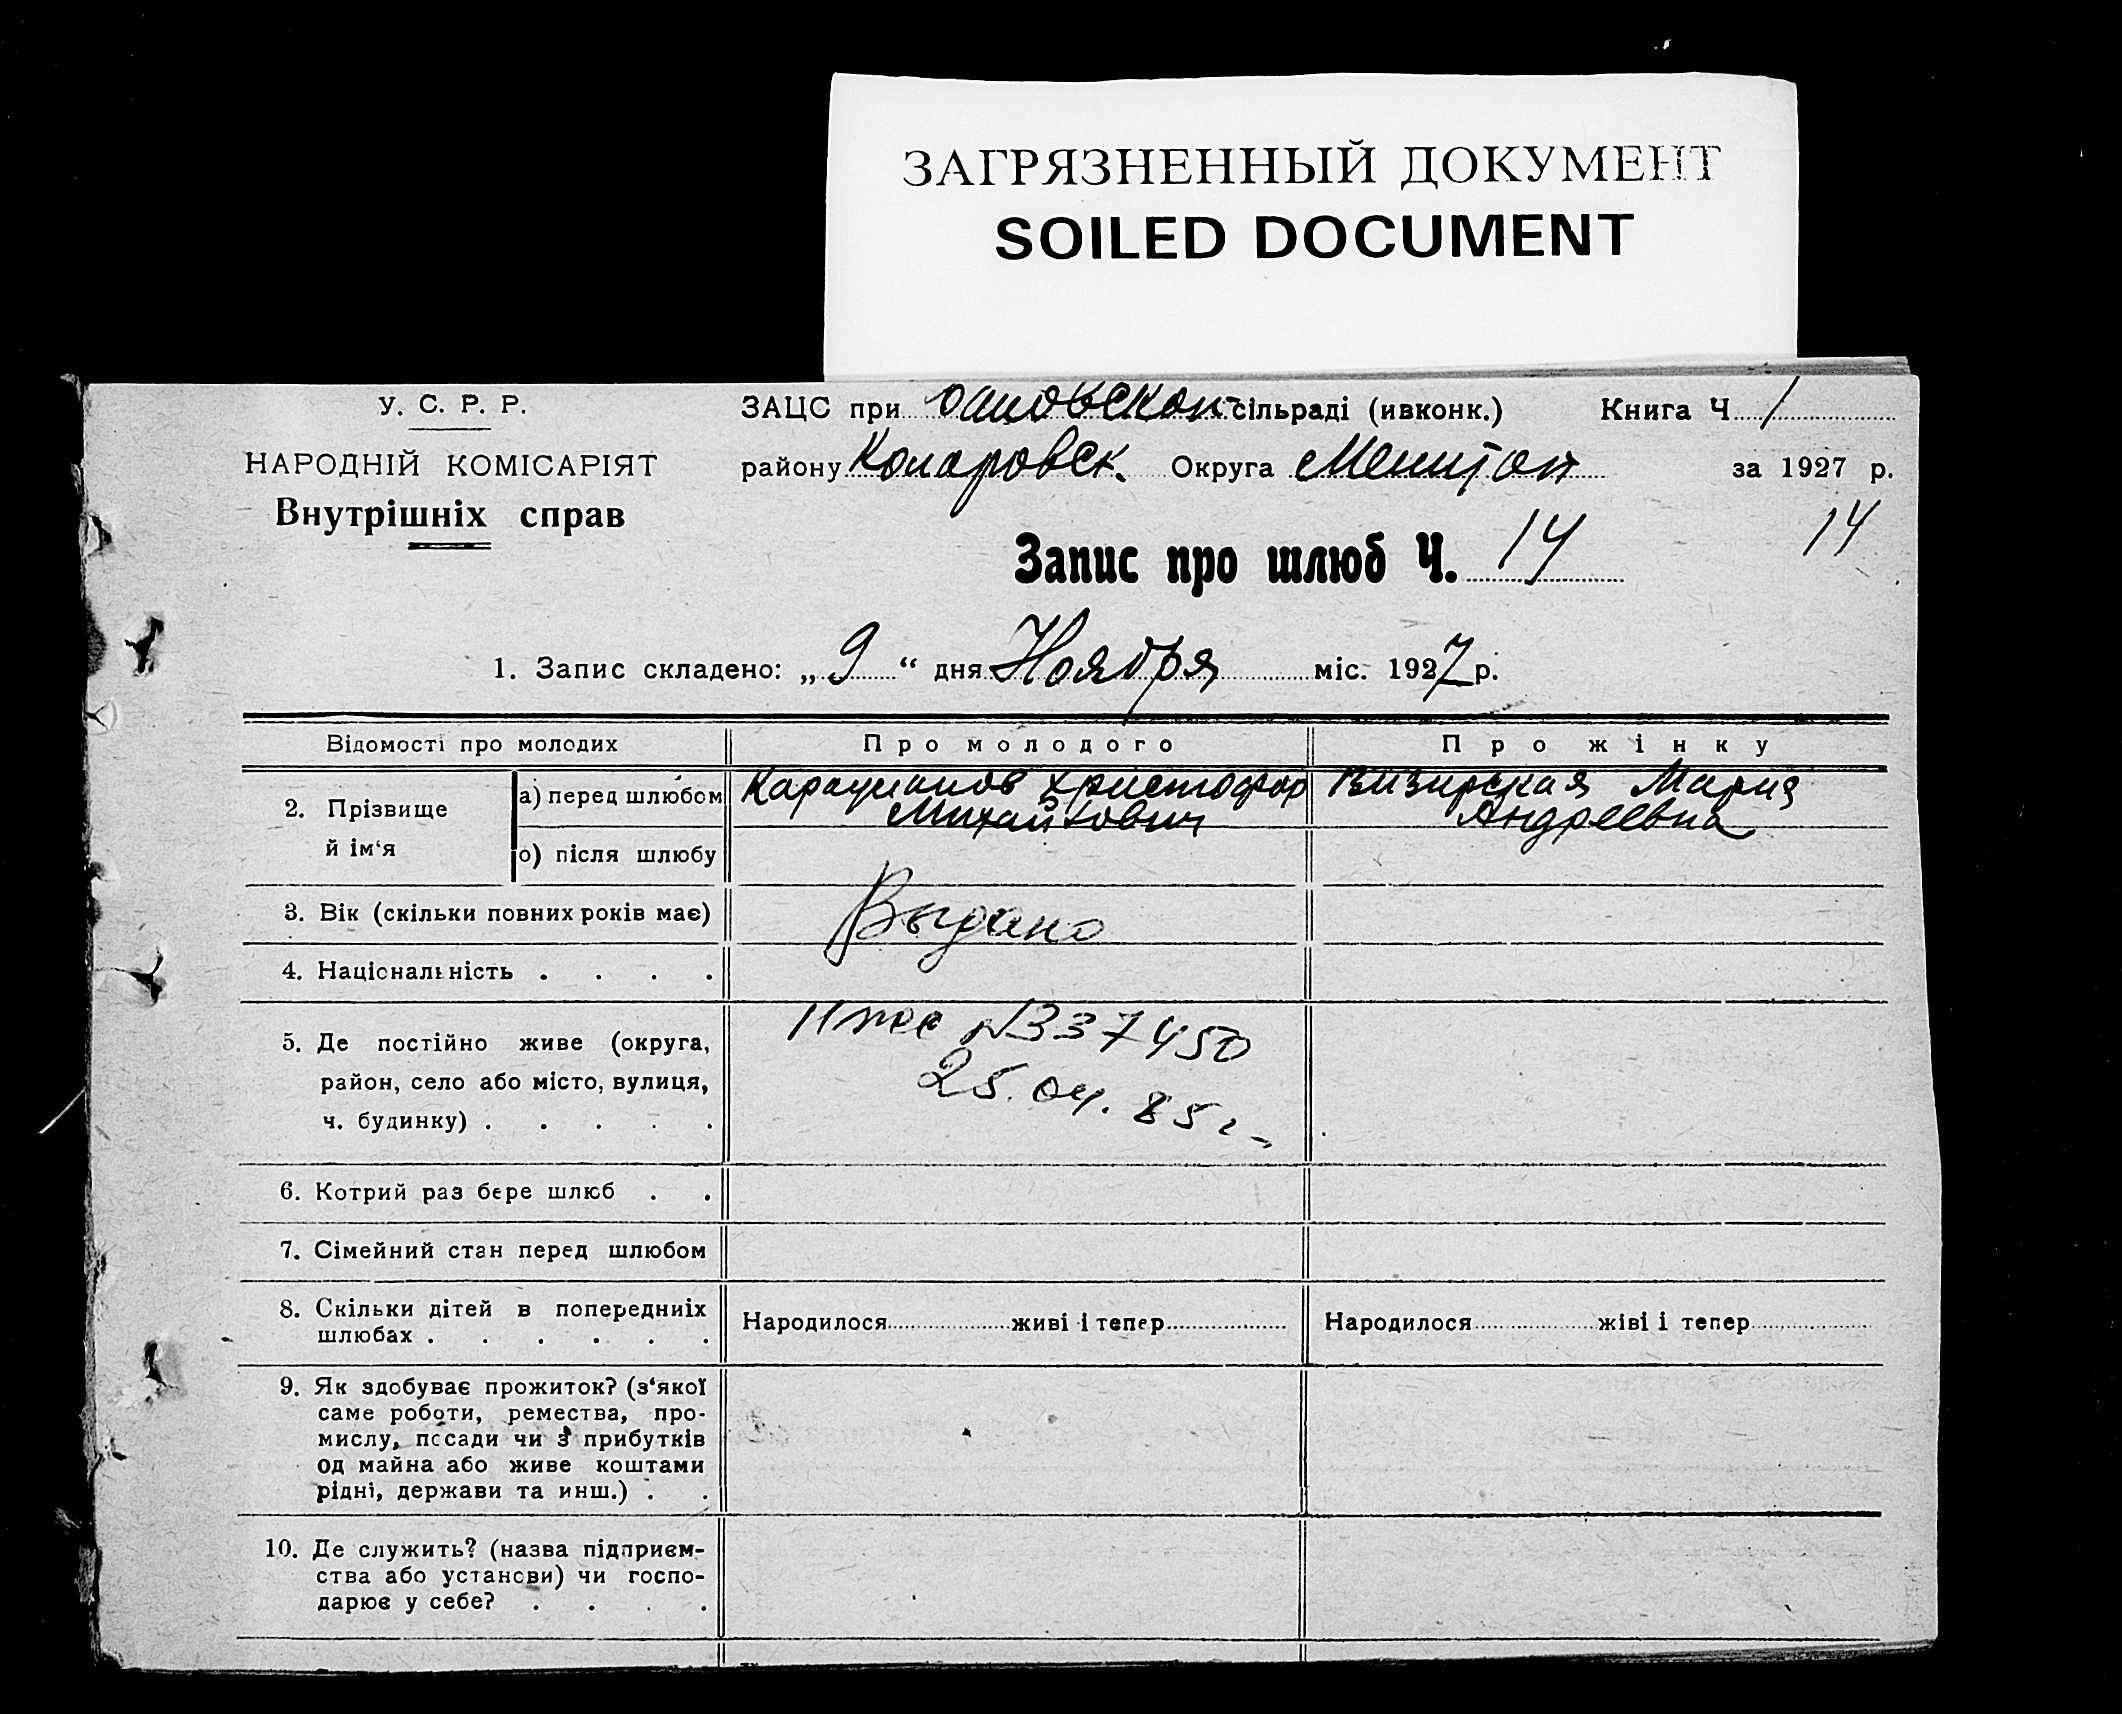 ЗАГРЯЗНЕННЫЙ ДОКУМЕНТ
SOILED DOCUMENT
У. С. Р. Р.
НАРОДНІЙ КОМІСАРІЯТ
Внутрішніх справ
ЗАЦС при сільраді (ивконк.) Книга Ч 1
району Коларовск. Округа Мелитоп за 1927 р.
Запис про шлюб Ч. 14
14
1. Запис складено: „ 9 “ дня Ноября міс. 1927 р.
Відомості про молодих
Про молодого
Про жінку
2. Прізвище й ім‘я
а) перед шлюбом
Христофор Михайлович
Визирская Мария Андреевна
о) після шлюбу
3. Вік (скільки повних років має)
Выдано
4. Національність . . . .
5. Де постійно живе (округа,
район, село або місто, вулиця,
ч. будинку) . . . . .
№ 337450
25.04.85 г.
6. Котрий раз бере шлюб . .
7. Сімейний стан перед шлюбом
8. Скільки дітей в попередниіх
шлюбах . . . . . .
Народилося живі і тепер
Народилося жіві і тепер
9. Як здобуває прожиток? (з‘якої
саме роботи, ремества, про-
мислу, посади чи з прибутків
од майна або живе коштами
рідні, держави та инш.) . .
10. Де служить? (назва підприєм-
ства або установи) чи госпо-
дарює у себе? . . . .